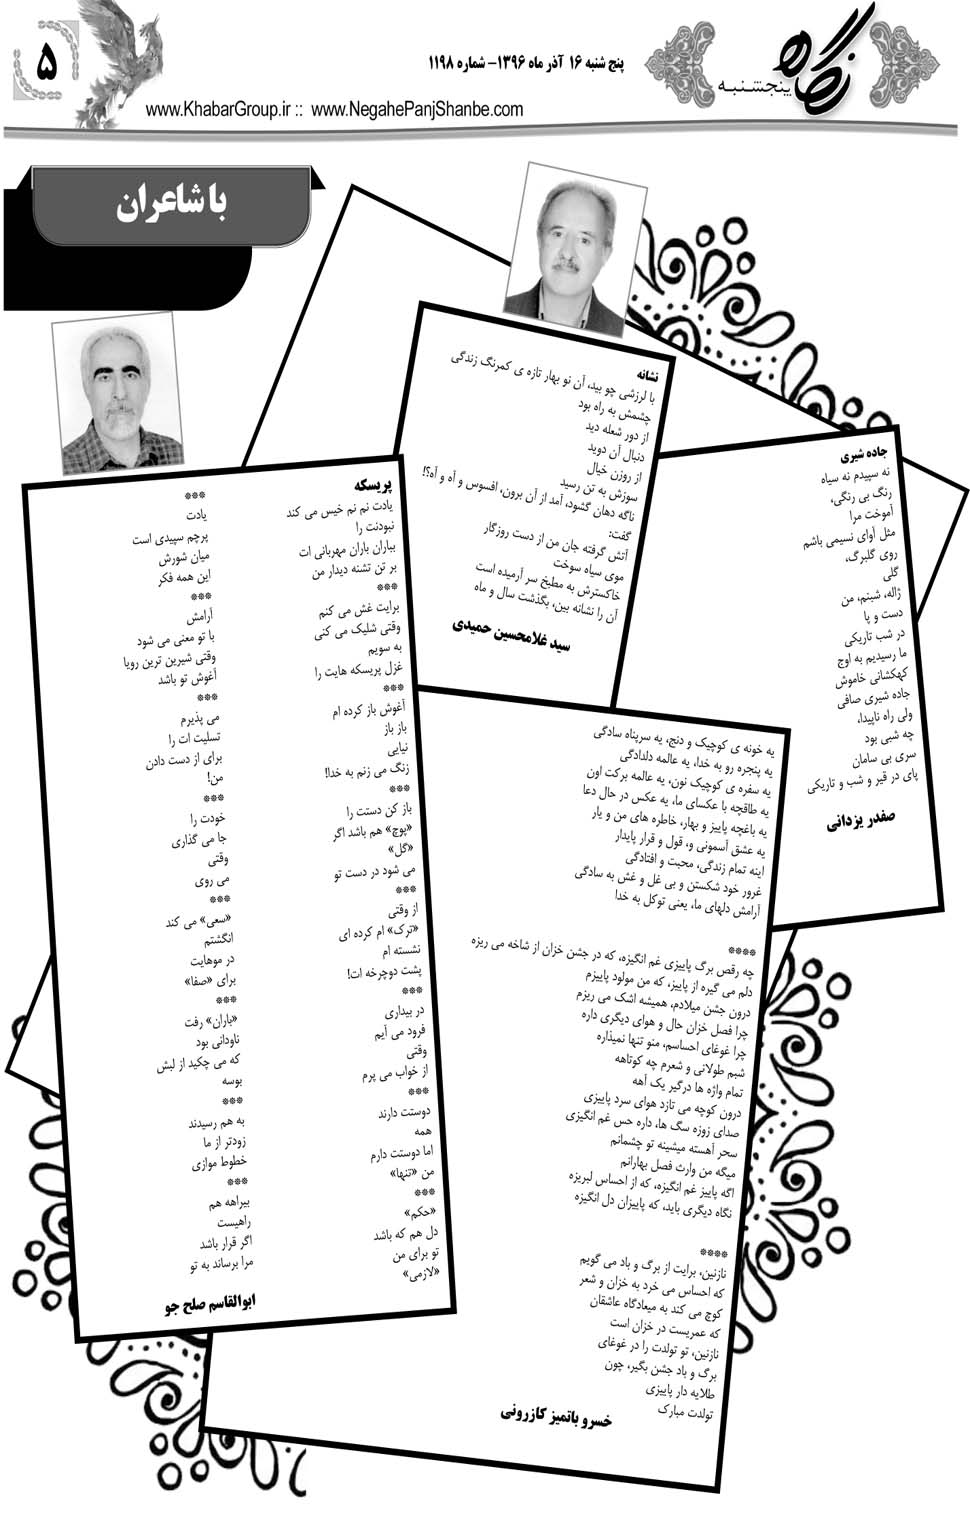 نگاه
پنجشنبه
پنج شنبه ۱۶ آذر ماه ۱۳۹۶- شماره ۱۱۹۸
www.KhabarGroup.ir :: www.NegahePanjShanbe.com
۵
با شاعران
جاده شیری
نه سپیدم نه سیاه
رنگ بی رنگی،
آموخت مرا
مثل آوای نسیمی باشم
روی گلبرگ،
گلی
ژاله، شبنم، من
دست و پا
در شب تاریکی
ما رسیدیم به اوج
کهکشانی خاموش
جاده شیری صافی
ولی راه ناپیدا،
چه شبی بود
سری بی سامان
پای در قیر و شب و تاریکی
صفدر یزدانی
نشانه
با لرزشی چو بید، آن نو بهار تازه ی کمرنگ زندگی
چشمش به راه بود
از دور شعله دید
دنبال آن دوید
از روزن خیال
سوزش به تن رسید
ناگه دهان گشود، آمد از آن برون، افسوس و آه و آه؟!
گفت:
آتش گرفته جان من از دست روزگار
موی سیاه سوخت
خاکسترش به مطبخ سر آرمیده است
آن را نشانه بین، بگذشت سال و ماه
سید غلامحسین حمیدی
پریسکه
یادت نم نم خیس می کند
نبودنت را
بباران باران مهربانی ات
بر تن تشنه دیدار من
***
برایت غش می کنم
وقتی شلیک می کنی
به سویم
غزل پریسکه هایت را
***
آغوش باز کرده ام
باز باز
نیایی
زنگ می زنم به خدا!
***
باز کن دستت را
«پوچ» هم باشد اگر
«گل»
می شود در دست تو
***
از وقتی
«ترک» ام کرده ای
نشسته ام
پشت دوچرخه ات!
***
در بیداری
فرود می آیم
وقتی
از خواب می پرم
***
دوستت دارند
همه
اما دوستت دارم
من «تنها»
***
«حکم»
دل هم که باشد
تو برای من
«لازمی»
***
یادت
پرچم سپیدی است
میان شورش
این همه فکر
***
آرامش
با تو معنی می شود
وقتی شیرین ترین رویا
آغوش تو باشد
***
می پذیرم
تسلیت ات را
برای از دست دادن
من!
***
خودت را
جا می گذاری
وقتی
می روی
***
«سعی» می کند
انگشتم
در موهایت
برای «صفا»
***
«باران» رفت
ناودانی بود
که می چکید از لبش
بوسه
***
به هم رسیدند
زودتر از ما
خطوط موازی
***
بیراهه هم
راهیست
اگر قرار باشد
مرا برساند به تو
ابوالقاسم صلح جو
یه خونه ی کوچیک و دنج، یه سرپناه سادگی
یه پنجره رو به خدا، یه عالمه دلدادگی
یه سفره ی کوچیک نون، یه عالمه برکت اون
یه طاقچه با عکسای ما، یه عکس در حال دعا
یه باغچه پاییز و بهار، خاطره های من و یار
یه عشق آسمونی و، قول و قرار پایدار
اینه تمام زندگی، محبت و افتادگی
غرور خود شکستن و بی غل و غش به سادگی
آرامش دلهای ما، یعنی توکل به خدا
****
چه رقص برگ پاییزی غم انگیزه، که در جشن خزان از شاخه می ریزه
دلم می گیره از پاییز، که من مولود پاییزم
درون جشن میلادم، همیشه اشک می ریزم
چرا فصل خزان حال و هوای دیگری داره
چرا غوغای احساسم، منو تنها نمیذاره
شبم طولانی و شعرم چه کوتاهه
تمام واژه ها درگیر یک آهه
درون کوچه می تازد هوای سرد پاییزی
صدای زوزه سگ ها، داره حس غم انگیزی
سحر آهسته میشینه تو چشمانم
میگه من وارث فصل بهارانم
اگه پاییز غم انگیزه، که از احساس لبریزه
نگاه دیگری باید، که پاییزان دل انگیزه
****
نازنین، برایت از برگ و باد می گویم
که احساس می خرد به خزان و شعر
کوچ می کند به میعادگاه عاشقان
که عمریست در خزان است
نازنین، تو تولدت را در غوغای
برگ و باد جشن بگیر، چون
طلایه دار پاییزی
تولدت مبارک
خسرو باتمیز کازرونی